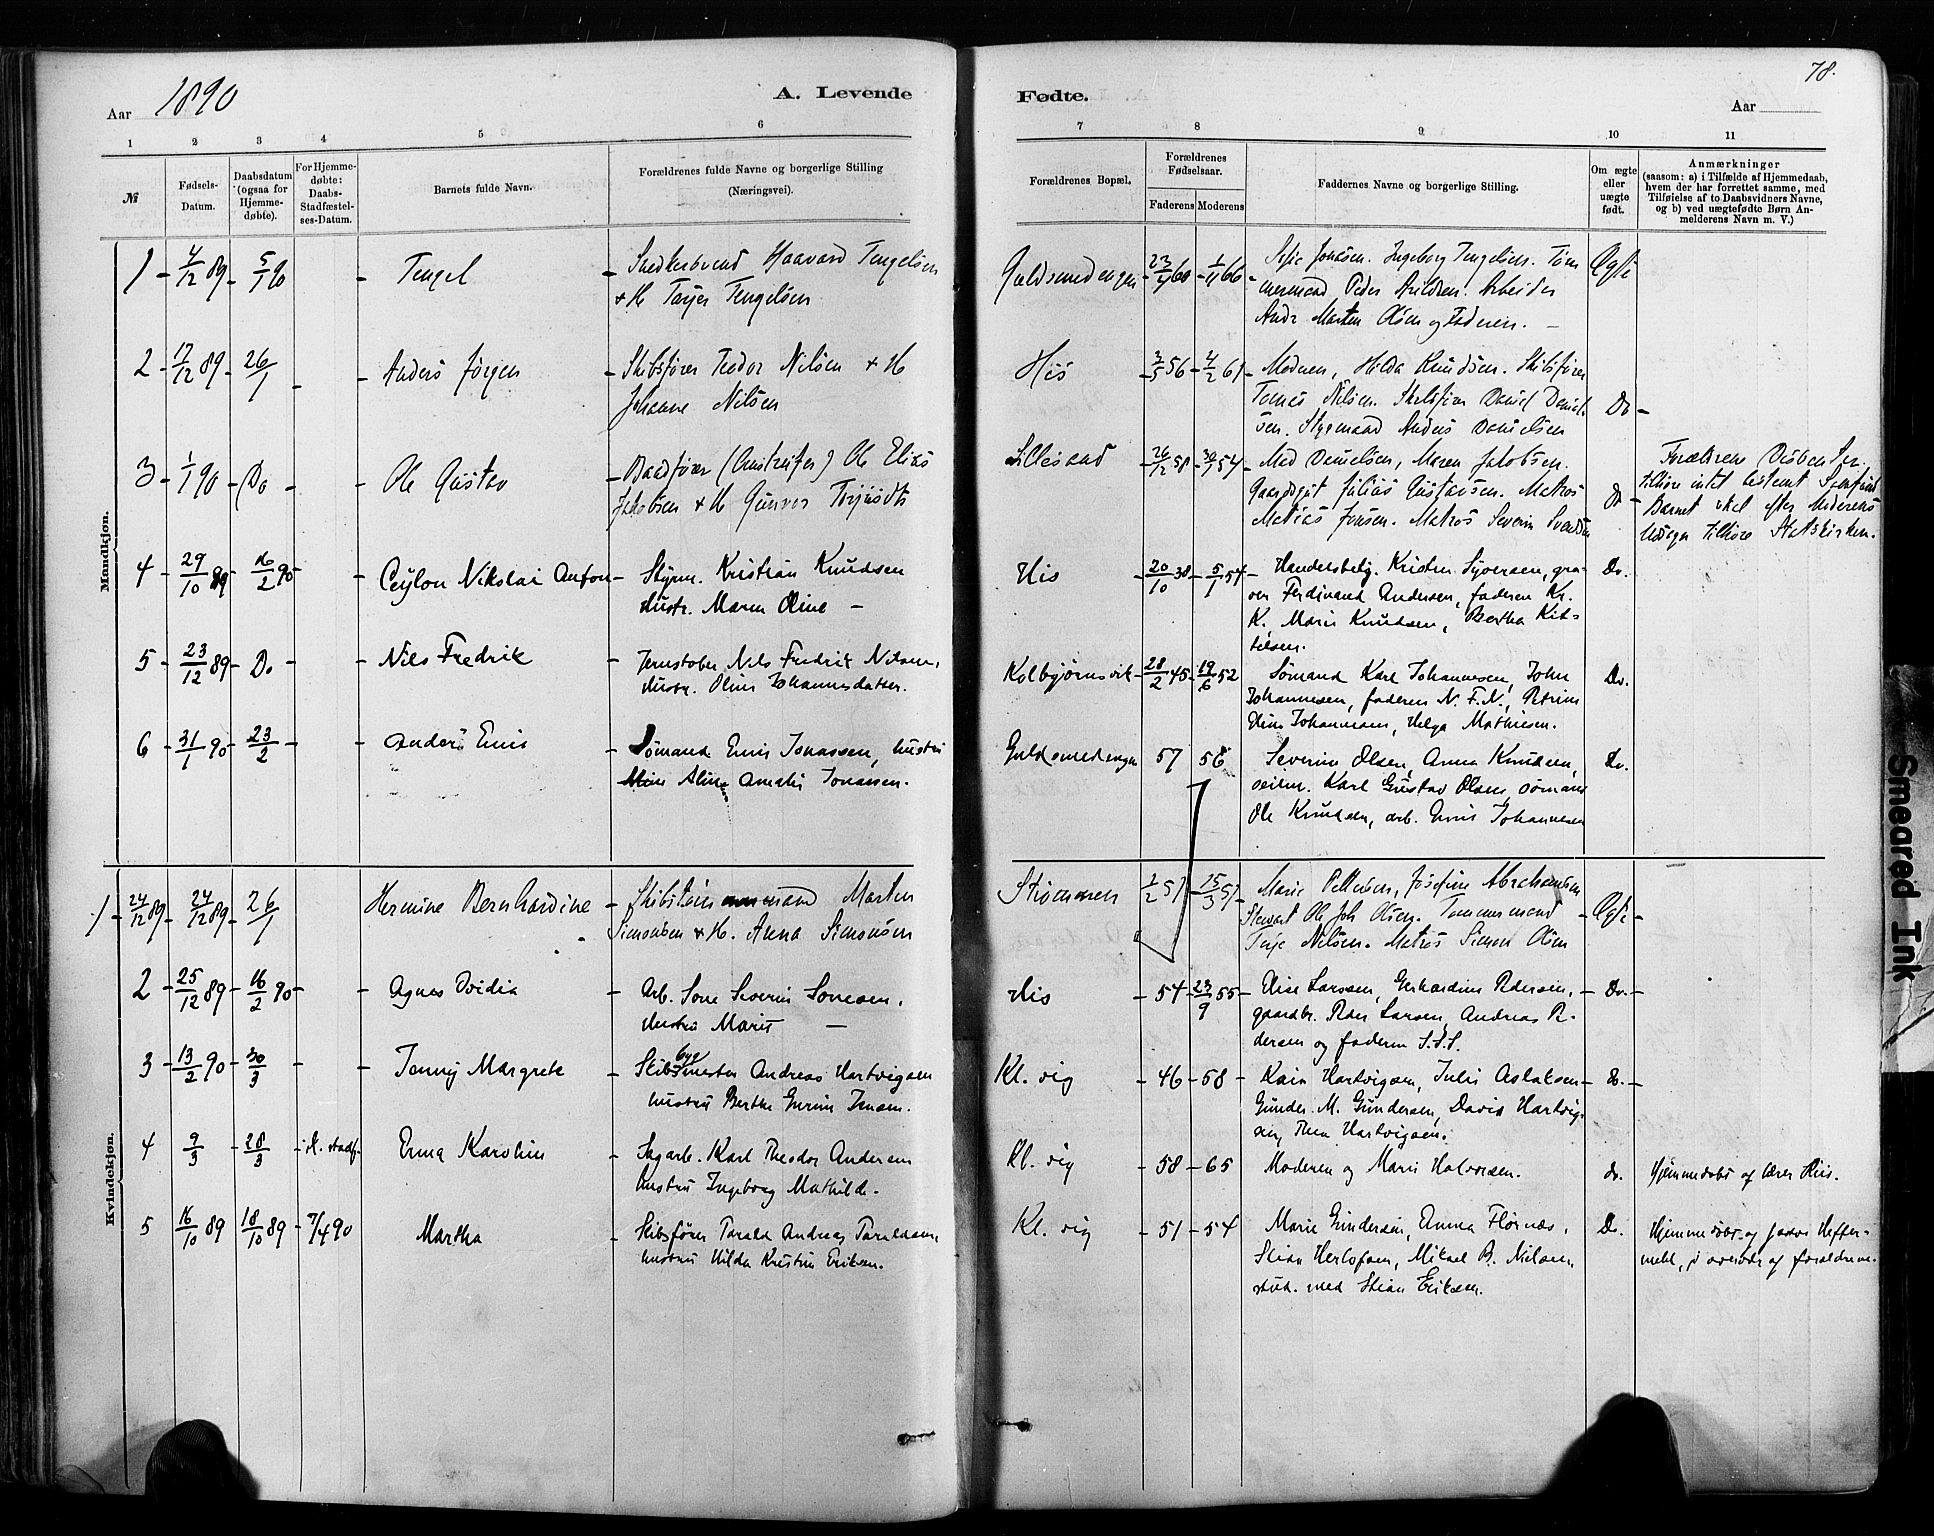 Aar 1890
A. Levende
1 2 3 4 5 6
№
Fødsels-
Datum.
Daabsdatum
(ogsaa for
Hjemme-
døbte).
For Hjemme-
døbte:
Daabs-
Stadfæstel-
ses-Datum.
Barnets fulde Navn.
Forældrenes fulde Navne og borgerlige Stilling
(Næringsvei).
Mandkjøn.
1 4/12 89 5/1 90 Tengel
Snedkersvend Haavard Tengelsen
+ H Tarjer Tengelsen
2 17/12 89 26/1 Anders Jørgen
Skibsfører Teodor Nilsen + H
Johanne Nilsen
3 1/1 90 Do Ole Gustav
Baadfører Ole Elias
Jakobsen + H Gunvor
4 29/10 89 16/2 90 Ceylon Nikolai Anton
Styrm. Kristian Knudsen
Hustr. Maren Oline
5 23/12 89 Do Nils Fredrik
Jernstøber Nils Fredrik Nilsen,
Hustr. Oline Johannesdatter.
6 31/1 90 23/2 Anders Emis
Sømand Emis Jonassen, hustru
Aline Amalie Jonassen.
Kvindekjøn.
1 24/12 89 24/12 89 26/1 Hermine Bernhardine
Skibstømmermand Martin
Simonsen + H. Anna Simonsen
2 25/12 89 16/2 90 Agnes Ovidia
Arb. Sone Severin Sonesen,
Hustru Marie
3 13/2 90 30/3 Jenny Margrete
Skibsbygmester Andreas Hartvigsen
hustru Berthe Gurine Jensen.
4 9/3 28/3 Emma Karoline
Sagarb. Karl Theodor Andersen
hustru Ingeborg Mathilde.
5 16/10 89 18/10 89 7/4 90 Martha
Skibsfører Tarald Andreas Taraldsen,
hustru Hilda Kristine Eriksen.
78.
Fødte.
Aar
7 8 9 10 11
Forældrenes Bopæl.
Forældrenes
Fødselsaar.
Faderens Moderens
Faddernes Navne og borgerlige Stilling.
Om ægte
eller
uægte
født.
Anmærkninger
(saasom: a) i Tilfælde af Hjemmedaab,
hvem der har forrettet samme, med
Tilføielse af to Daabsvidners Navne,
og b) ved uægtefødte Børn An-
melderens Navn m. V.)
Guldsmedengen 23/4 60 1/11 66 Sofie Jonasen. Ingeborg Tengelsen. Tøm Ægte
mermand Peder Arildsen. Arbeider
Andr Martin Olsen og Faderen.
His 3/5 56 4/2 61 Moderen, Hilda Knudsen. Skibsfører
Tomas Nilsen. Skibsfører Daniel Daniel-
sen. Styrmand Anders Danielsen Do
Lillesand 26/12 58 30/1 54 Mad Danielsen, Maren Jakobsen.
Gaardsgut Julius Gustavsen. Matros Do
Matias Jensen. Matros Severin
Forældrene
tilhøre intet bestemt
Barnet skal efter Moderens
Udsagn tilhøre Statskirken.
His 20/10 38 5/1 54 Handelsbetj. Kristen Syversen, gra- Do.
ver Ferdinand Andersen, faderen Kr.
K. Marie Knudsen, Bertha Kit-
telsen.
Kolbjørnsvik 28/2 45 19/6 52 Sømand Karl Johannesen, John Do.
Johannesen, faderen N. F. N., Petrine
Oline Johannesen, Helga Mathisen.
Guldsmedengen 57 56 Severine Olsen, Anna Knudsen, Do.
seilm. Karl Gustav Olsen, sømand
Ole Knudsen, arb. Emis Johannesen
Strømmen 1/2 51 15/3 51 Marie Pettersen, Josefine Abrahamsen
Stewart Ole Joh Olsen. Tømmermand Ægte
Terje Nilsen. Matros Simon Olsen
His 54 23/9 55 Elise Larssen, Gerhardine Pedersen, Do.
gaardbr. Peder Larsen, Andreas P-
dersen og faderen S.S.S.
Kl. vig 46 58 Karen Hartvigsen, Julie Aslaksen do.
Gunder M. Gundersen, David Hartvig-
sen, Thea Hartvigsen.
Kl. vig 58 65 Moderen og Marie Halvorsen. do. Hjemmedøbt af lærer Riis.
Kl. vig 51 54 Marie Gundersen, Emma Flørnæs, Do.
Stian Herlofsen, Mikael B. Nielsen,
stud. med Stian Eriksen.
Hjemmedøbt af pastor Hefter-
mehl, i overvær af forældrene.
Smeared Ink